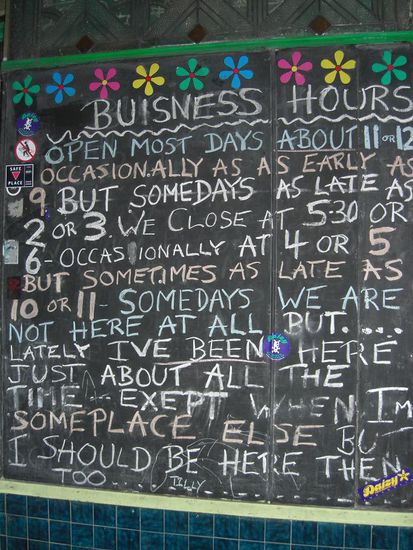 BUISNESS HOURS
OPEN MOST DAYS ABOUT 11 OR 12
OCCASIONALLY AS AS EARLY AS
9 BUT SOMEDAYS AS LATE AS
2 OR 3. WE CLOSE AT 5:30 OR
6- OCCASIONALLY AT 4 OR 5
BUT SOMETIMES AS LATE AS
10 OR 11- SOMEDAYS WE ARE
NOT HERE AT ALL BUT....
LATELY I'VE BEEN HERE
JUST ABOUT ALL THE
TIME - EXEPT WHEN I'M
SOMEPLACE ELSE BU
I SHOULD BE HERE THEN
TOO - TILLY
SAFE
PLACE
Daizy